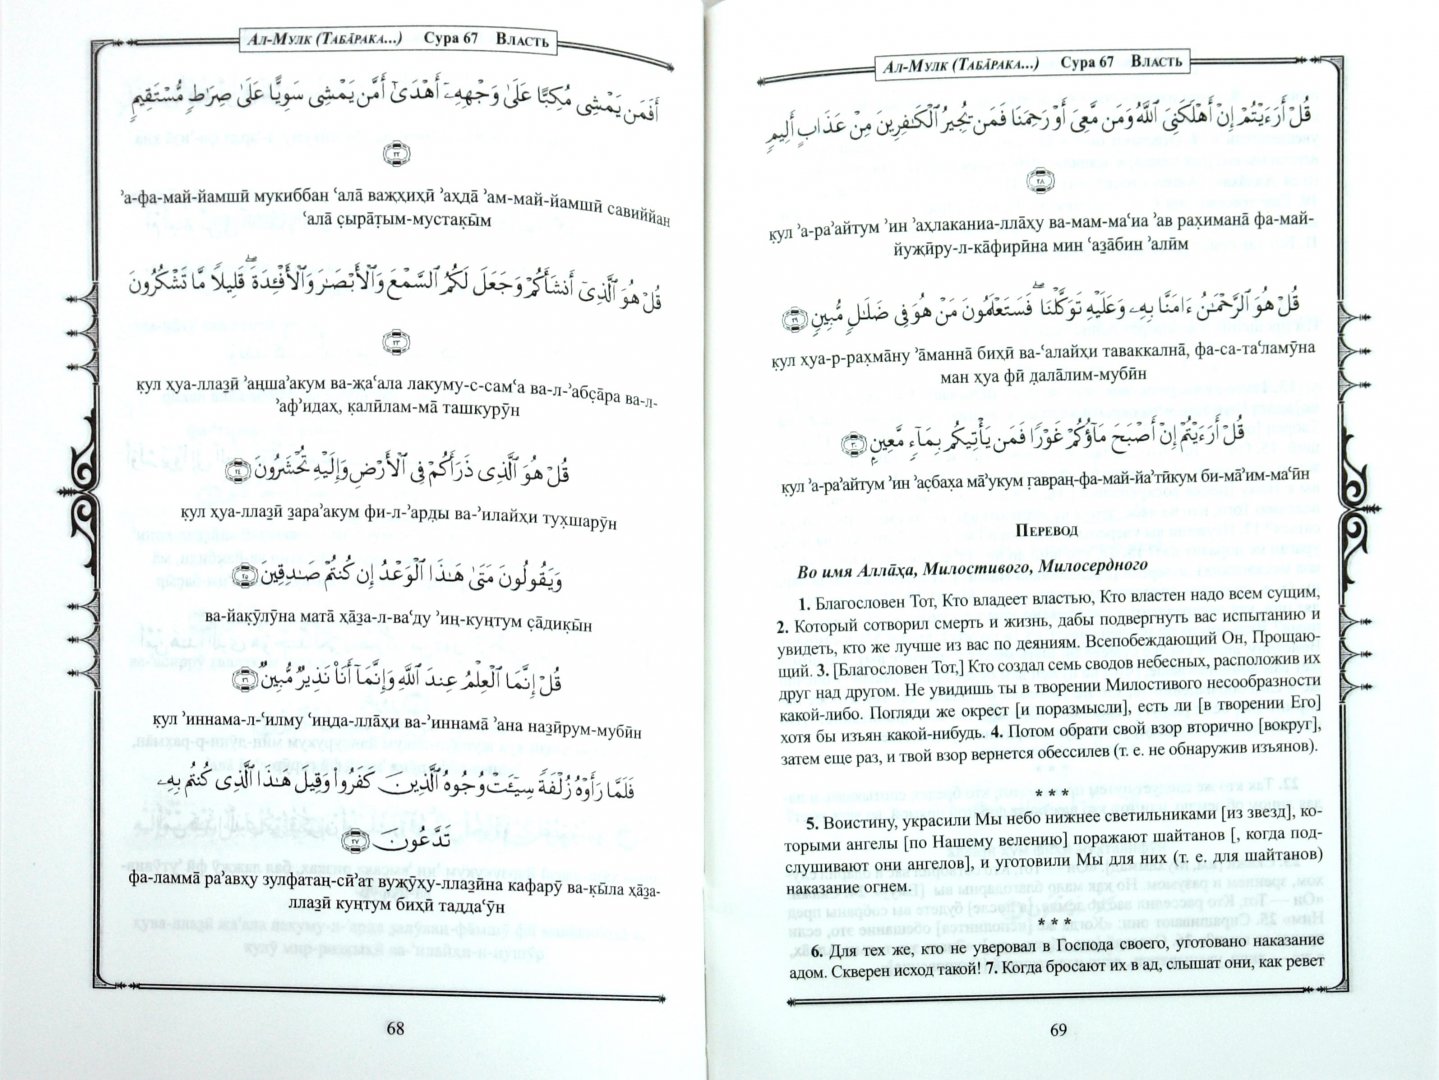 Ал-Мулк (Таба̄рака...) Сура 67 Власть
أَفَمَن يَمْشِى مُكِبًّا عَلَىٰ وَجْهِهِۦٓ أَهْدَىٰٓ أَمَّن يَمْشِى سَوِيًّا عَلَىٰ صِرَٰطٍ مُّسْتَقِيمٍ
٢٢
ʼа-фа-май-йамшӣ мукиббан ʻала̄ важ̣х̣ихӣ ʼах̣да̄ ʼам-май-йамшӣ савиййан
ʻала̄ с̣ыра̄т̣ым-мустак̣ы̄м
قُلْ هُوَ ٱلَّذِىٓ أَنشَأَكُمْ وَجَعَلَ لَكُمُ ٱلسَّمْعَ وَٱلْأَبْصَٰرَ وَٱلْأَفْـِٔدَةَ ۖ قَلِيلًا مَّا تَشْكُرُونَ
٢٣
к̣ул х̣уа-ллаз̱ӣ ʼан̣шаʼакум ва-ж̣аʻала лакуму-с-самʻа ва-л-ʼабс̣а̄ра ва-л-
ʼафʼидах̣, к̣алӣлам-ма̄ ташкурӯн
قُلْ هُوَ ٱلَّذِى ذَرَأَكُمْ فِى ٱلْأَرْضِ وَإِلَيْهِ تُحْشَرُونَ ٢٤
к̣ул х̣уа-ллаз̱ӣ з̱араʼакум фи-л-ʼард̣ы ва-ʼилайх̣и тух̣шарӯн
وَيَقُولُونَ مَتَىٰ هَٰذَا ٱلْوَعْدُ إِن كُنتُمْ صَٰدِقِينَ ٢٥
ва-йак̣ӯлӯна мата̄ х̣а̄з̱а-л-ваʻду ʼин̣-кун̣тум с̣а̄дик̣ы̄н
قُلْ إِنَّمَا ٱلْعِلْمُ عِندَ ٱللَّهِ وَإِنَّمَآ أَنَا۠ نَذِيرٌ مُّبِينٌ ٢٦
к̣ул ʼиннама-л-ʻилму ʻин̣да-лла̄х̣и ва-ʼиннама̄ ʼана наз̱ӣрум-мубӣн
فَلَمَّا رَأَوْهُ زُلْفَةً سِيٓـَٔتْ وُجُوهُ ٱلَّذِينَ كَفَرُوا۟ وَقِيلَ هَٰذَا ٱلَّذِى كُنتُم بِهِۦ
تَدَّعُونَ ٢٧
фа-ламма̄ раʼавх̣у зулфатан̣-сӣʼат вуж̣ӯх̣у-ллаз̱ӣна кафарӯ ва-к̣ы̄ла х̣а̄з̱а-
ллаз̱ӣ кун̣тум бих̣ӣ таддаʻӯн
68
Ал-Мулк (Таба̄рака...) Сура 67 Власть
قُلْ أَرَءَيْتُمْ إِنْ أَهْلَكَنِىَ ٱللَّهُ وَمَن مَّعِىَ أَوْ رَحِمَنَا فَمَن يُجِيرُ ٱلْكَٰفِرِينَ مِنْ عَذَابٍ أَلِيمٍ
٢٨
к̣ул ʼа-раʼайтум ʼин ʼах̣лаканиа-лла̄х̣у ва-мам-маʻиа ʼав рах̣имана̄ фа-май-
йуж̣ӣру-л-ка̄фирӣна мин ʻаз̱а̄бин ʼалӣм
قُلْ هُوَ ٱلرَّحْمَٰنُ ءَامَنَّا بِهِۦ وَعَلَيْهِ تَوَكَّلْنَا ۖ فَسَتَعْلَمُونَ مَنْ هُوَ فِى ضَلَٰلٍ مُّبِينٍ ٢٩
к̣ул х̣уа-р-рах̣ма̄ну ʼа̄манна̄ бих̣ӣ ва-ʻалайх̣и таваккална̄, фа-са-таʻламӯна
ман х̣уа фӣ д̣ала̄лим-мубӣн
قُلْ أَرَءَيْتُمْ إِنْ أَصْبَحَ مَآؤُكُمْ غَوْرًا فَمَن يَأْتِيكُم بِمَآءٍ مَّعِينٍۭ ٣٠
к̣ул ʼа-раʼайтум ʼин ʼас̣бах̣а ма̄ʼукум г̣авран̣-фа-май-йаʼтӣкум би-ма̄ʼим-маʻӣн
Перевод
Во имя Алла̄ха, Милостивого, Милосердного
1. Благословен Тот, Кто владеет властью, Кто властен надо всем сущим,
2. Который сотворил смерть и жизнь, дабы подвергнуть вас испытанию и
увидеть, кто же лучше из вас по деяниям. Всепобеждающий Он, Прощаю-
щий. 3. [Благословен Тот,] Кто создал семь сводов небесных, расположив их
друг над другом. Не увидишь ты в творении Милостивого несообразности
какой-либо. Погляди же окрест [и поразмысли], есть ли [в творении Его]
хотя бы изъян какой-нибудь. 4. Потом обрати свой взор вторично [вокруг],
затем еще раз, и твой взор вернется обессилев (т. е. не обнаружив изъянов).
* * *
5. Воистину, украсили Мы небо нижнее светильниками [из звезд], ко-
торыми ангелы [по Нашему велению] поражают шайтанов [, когда под-
слушивают они ангелов], и уготовили Мы для них (т. е. для шайтанов)
наказание огнем.
* * *
6. Для тех же, кто не уверовал в Господа своего, уготовано наказание
адом. Скверен исход такой! 7. Когда бросают их в ад, слышат они, как ревет
69